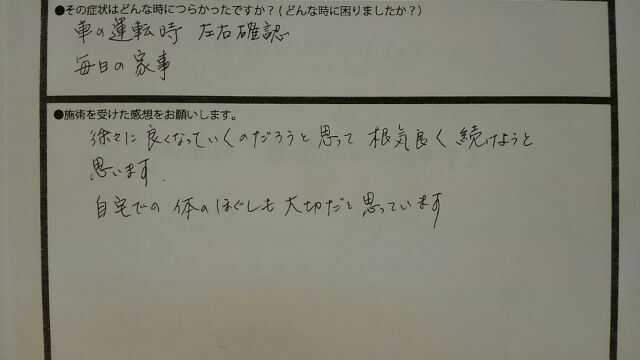 ●その症状はどんな時につらかったですか？(どんな時に困りましたか？)
車の運転時 左右確認
毎日の家事
●施術を受けた感想をお願いします。
徐々に良くなっていくのだろうと思って 根気良く 続けようと
思います.
自宅での 体のほぐしも 大切だと思っています